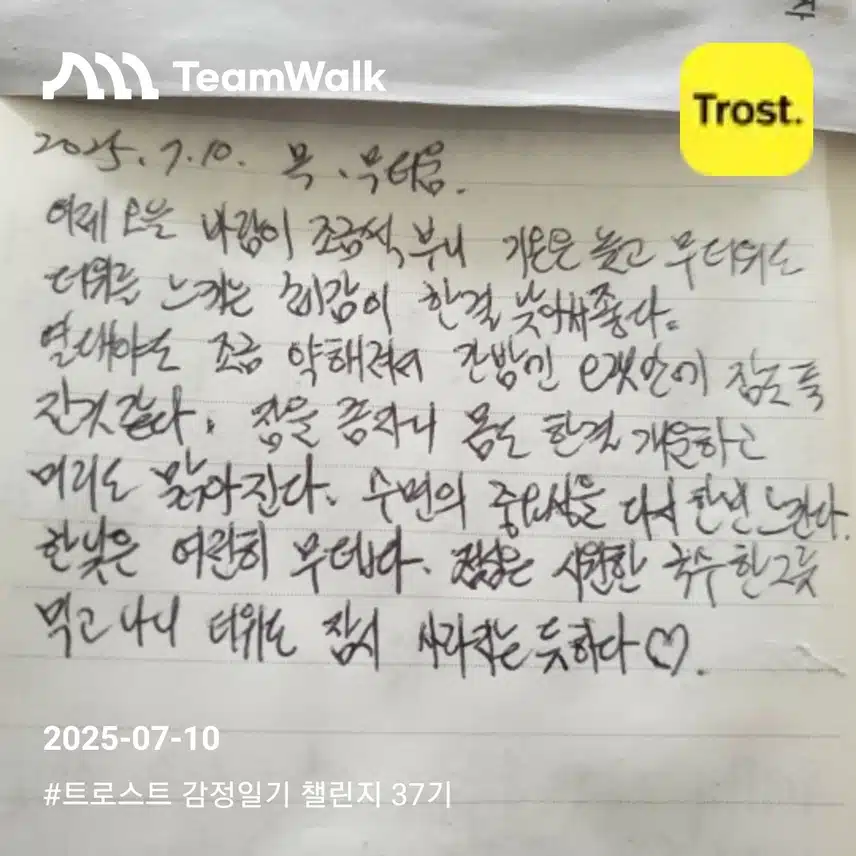 TeamWalk
Trost.
2025. 7. 10. 목. 무더움.
어제 오늘 바람이 조금씩 부니 기온은 높고 무더워도
더위를 느끼는 체감이 한결 낮아져 좋다.
열대야도 조금 약해져서 간밤민 잠도 푹
잔것 같다. 잠을 좀자니 몸도 한결 개운하고
머리도 맑아진다. 수면의 중요성을 다시 한번 느낀다.
한낮은 여전히 무덥다. 점심은 시원한 국수 한그릇
먹고 나니 더위도 잠시 사라지는 듯하다♡.
2025-07-10
#트로스트 감정일기 챌린지 37기